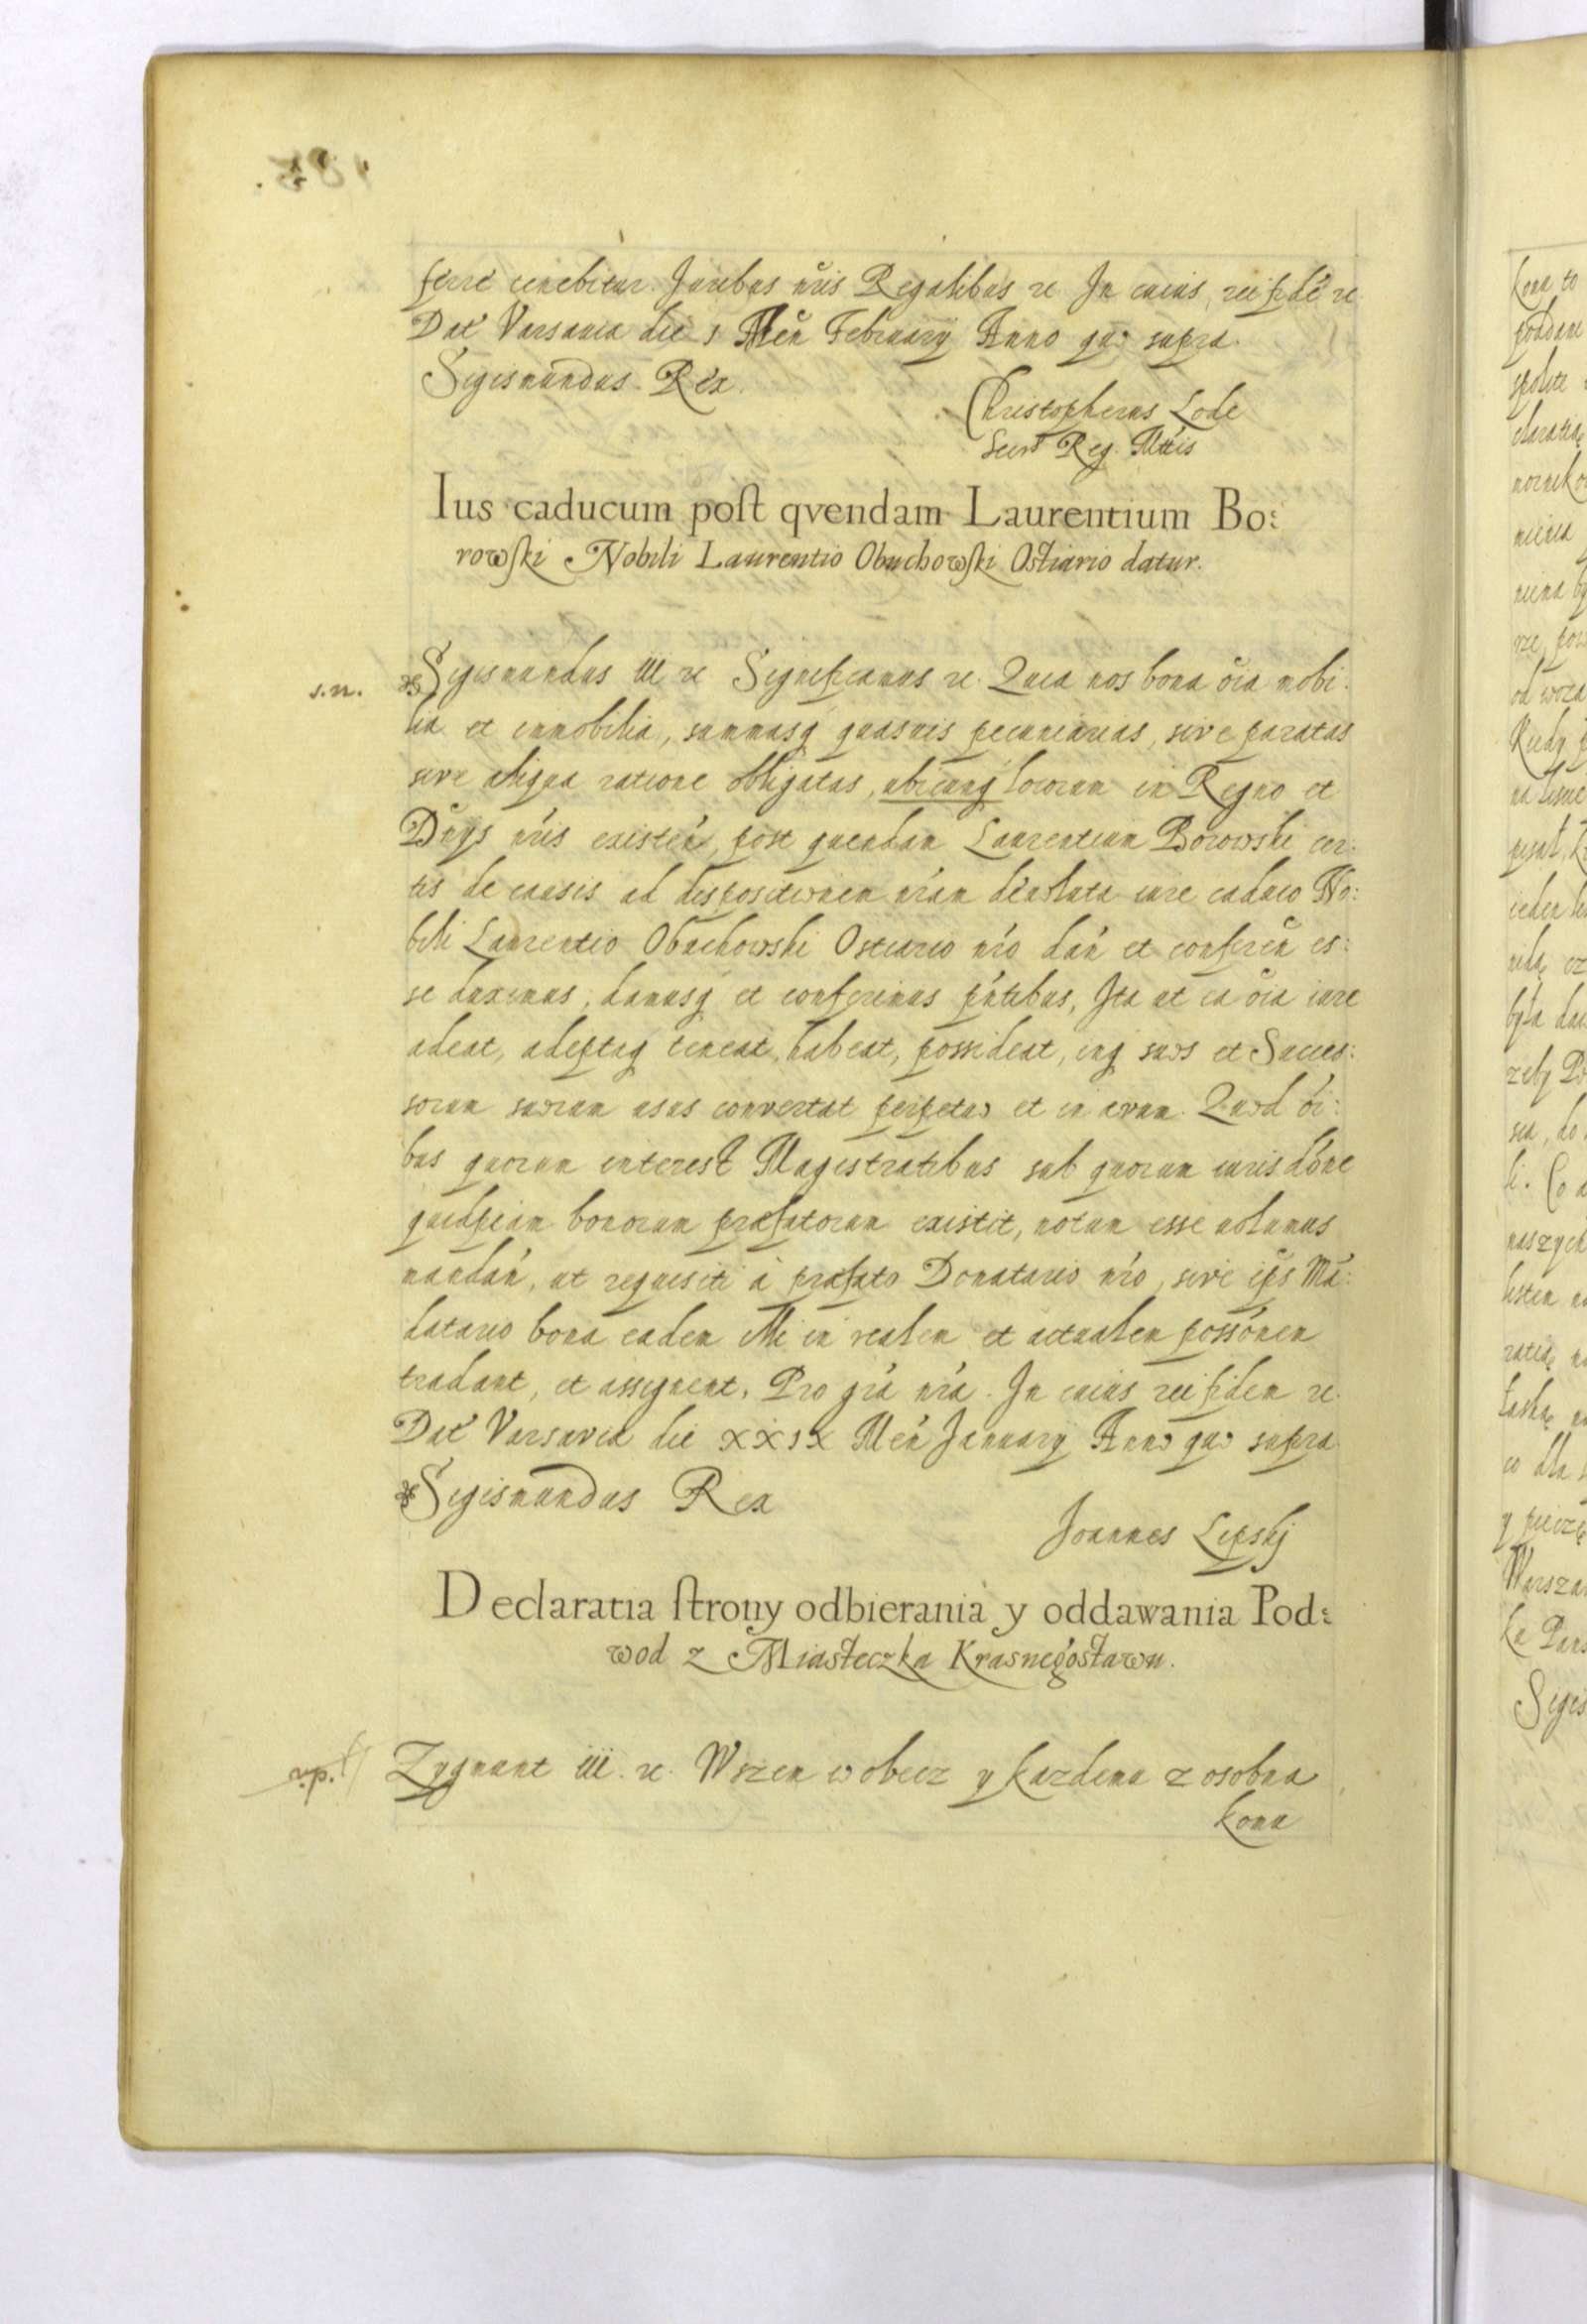 ferre tenebitur. Juribus nr̃is Regalibus rc In cuius rei fidẽ rc
Dat Varsaviæ die 1 Mẽn February Anno quo supra.
Sigismundus Rex.
Christopherus Lode
Secrs Reg. Mttis
Ius caducum post qvendam Laurentium Bo:
rowski Nobili Laurentio Obuchowski Ostiario datur.
s.n.
Sigismundus III rc Significamus rc. Quia nos bona õia mobi:
lia et immobilia, summasq quasvis pecuniarias, sive paratas
sive aliqua ratione obligatas, ubicunq locorum in Regno et
Dñys nr̃is existeñ, post quendam Laurentium Borowski cer:
tis de causis ad dispositionem nr̃am devoluta iure caduco No:
bili Laurentio Obuchowski Ostiario nr̃o dañ et confereñ es:
se duximus, damusq et conferimus pñtibus, Ita ut ea õia iure
adeat, adeptaq teneat, habeat, possideat, inq suos et Succes:
sorum suorum usus convertat perpetuo et in ævum. Quod õi:
bus quorum interest Magistratibus sub quorum iurisdõne
quidpiam bonorum præfatorum existit, notum esse volumus
mandañ, ut requisiti à præfato Donatario nr̃o, sive ip̃s Mã:
datario bona eadem illi in realem et actualem possõnem
tradant, et assignent, Pro gr̃a nr̃a. In cuius rei fidem rc.
Dat Varsaviæ die XXIX Mẽn January Anno quo supra
Sigismundus Rex
Joannes Lipskj
Declaratia strony odbierania y oddawania Pod:
wod z Miasteczka Krasnegostawu.
Zygmunt III. rc. Wszem wobecz y kazdemu z osobna
komu